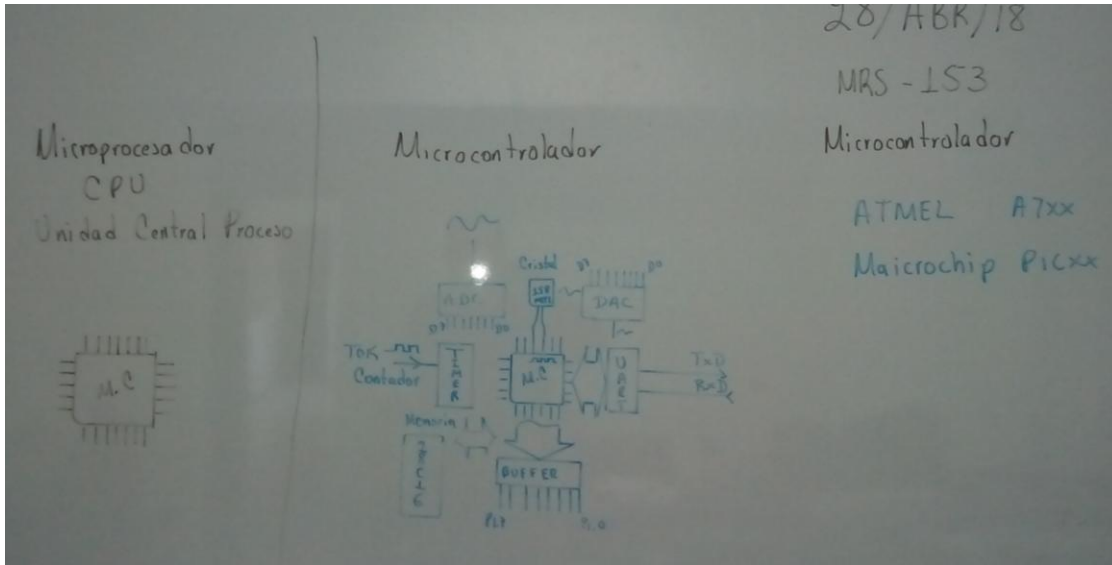 28/ABR/18
MRS-153
Microprocesador
CPU
Unidad Central Proceso
M.C
Microcontrolador
ADC
D7 D0
Cristal
D7 D0
DAC
TOK
Contador
TIMER
M.C
UART
TxD
RxD
Memoria
BUFFER
Microcontrolador
ATMEL A7xx
Maicrochip PICxx